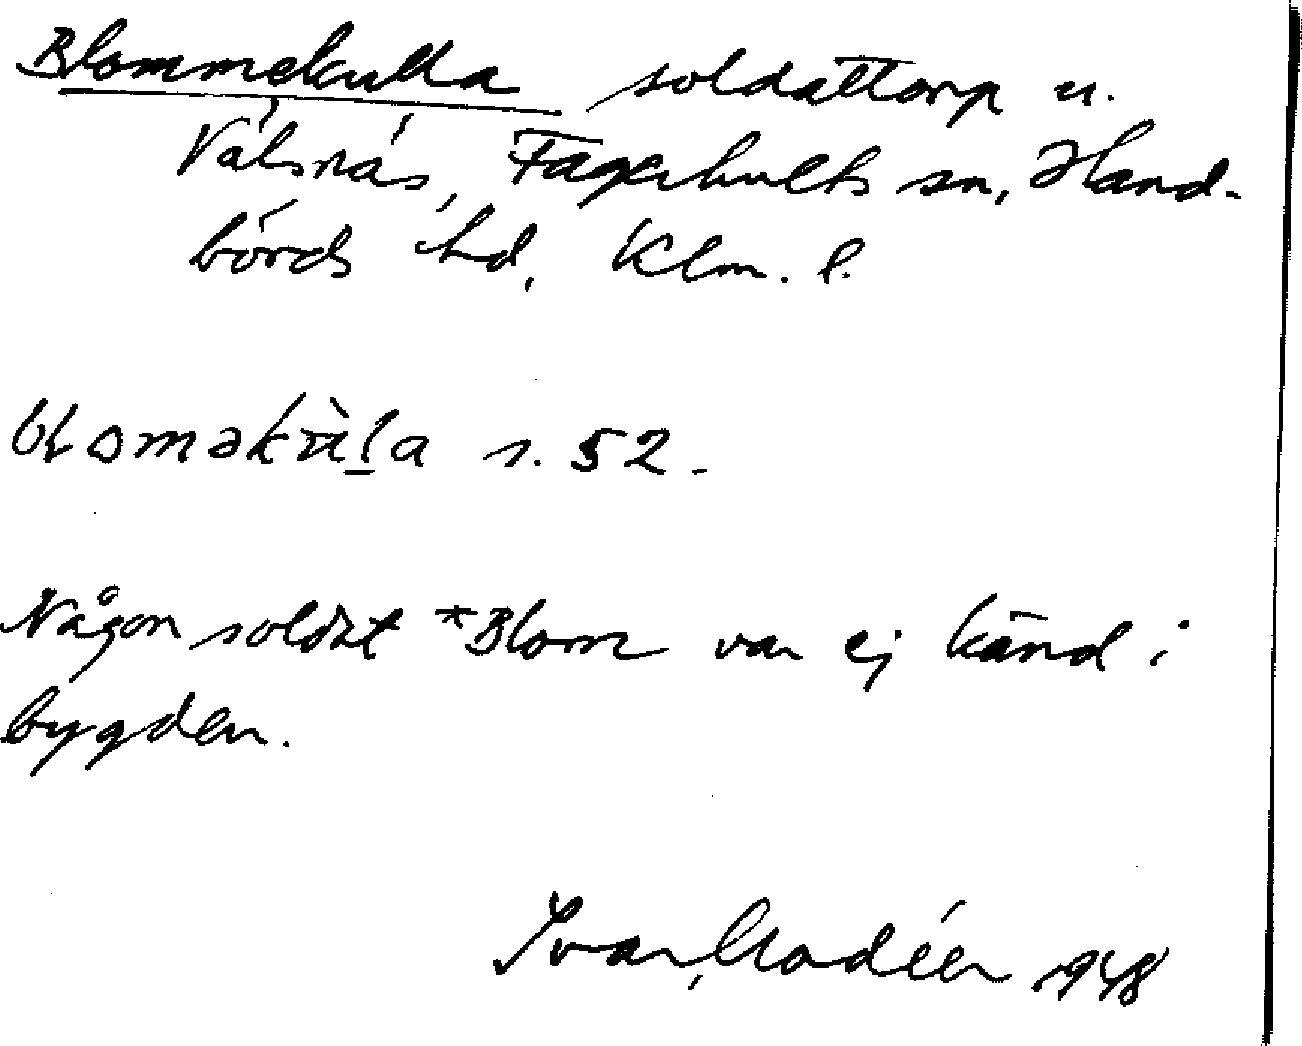 Blommekulla soldattorp u.
Välsnäs, Fagerhults sn, Hand-
börds hd, Klm. l.
blomәkùla s. 52.
Någon soldat *Blom var ej känd i
bygden.
Ivar Modéer 1948